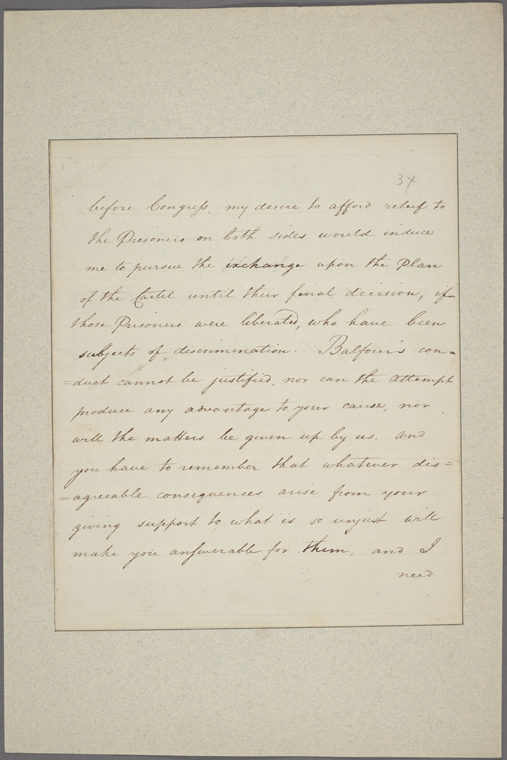 34
before Congress, my desire to afford relief to
the Prisoners on both sides would induce
me to pursue the exchange upon the Plan
of the Cartil until their final decision, if
those Prisoners were liberated, who have been
subjects of descrimination. Balfour's con-
=duct cannot be justified, nor can the attempt
produce any advantage to your cause, nor
will the matters be given up by us. and
you have to remember that whatever dis=
=agreeable consequences arise from your
giving support to what is so unjust will
make you answerable for them, and I
need